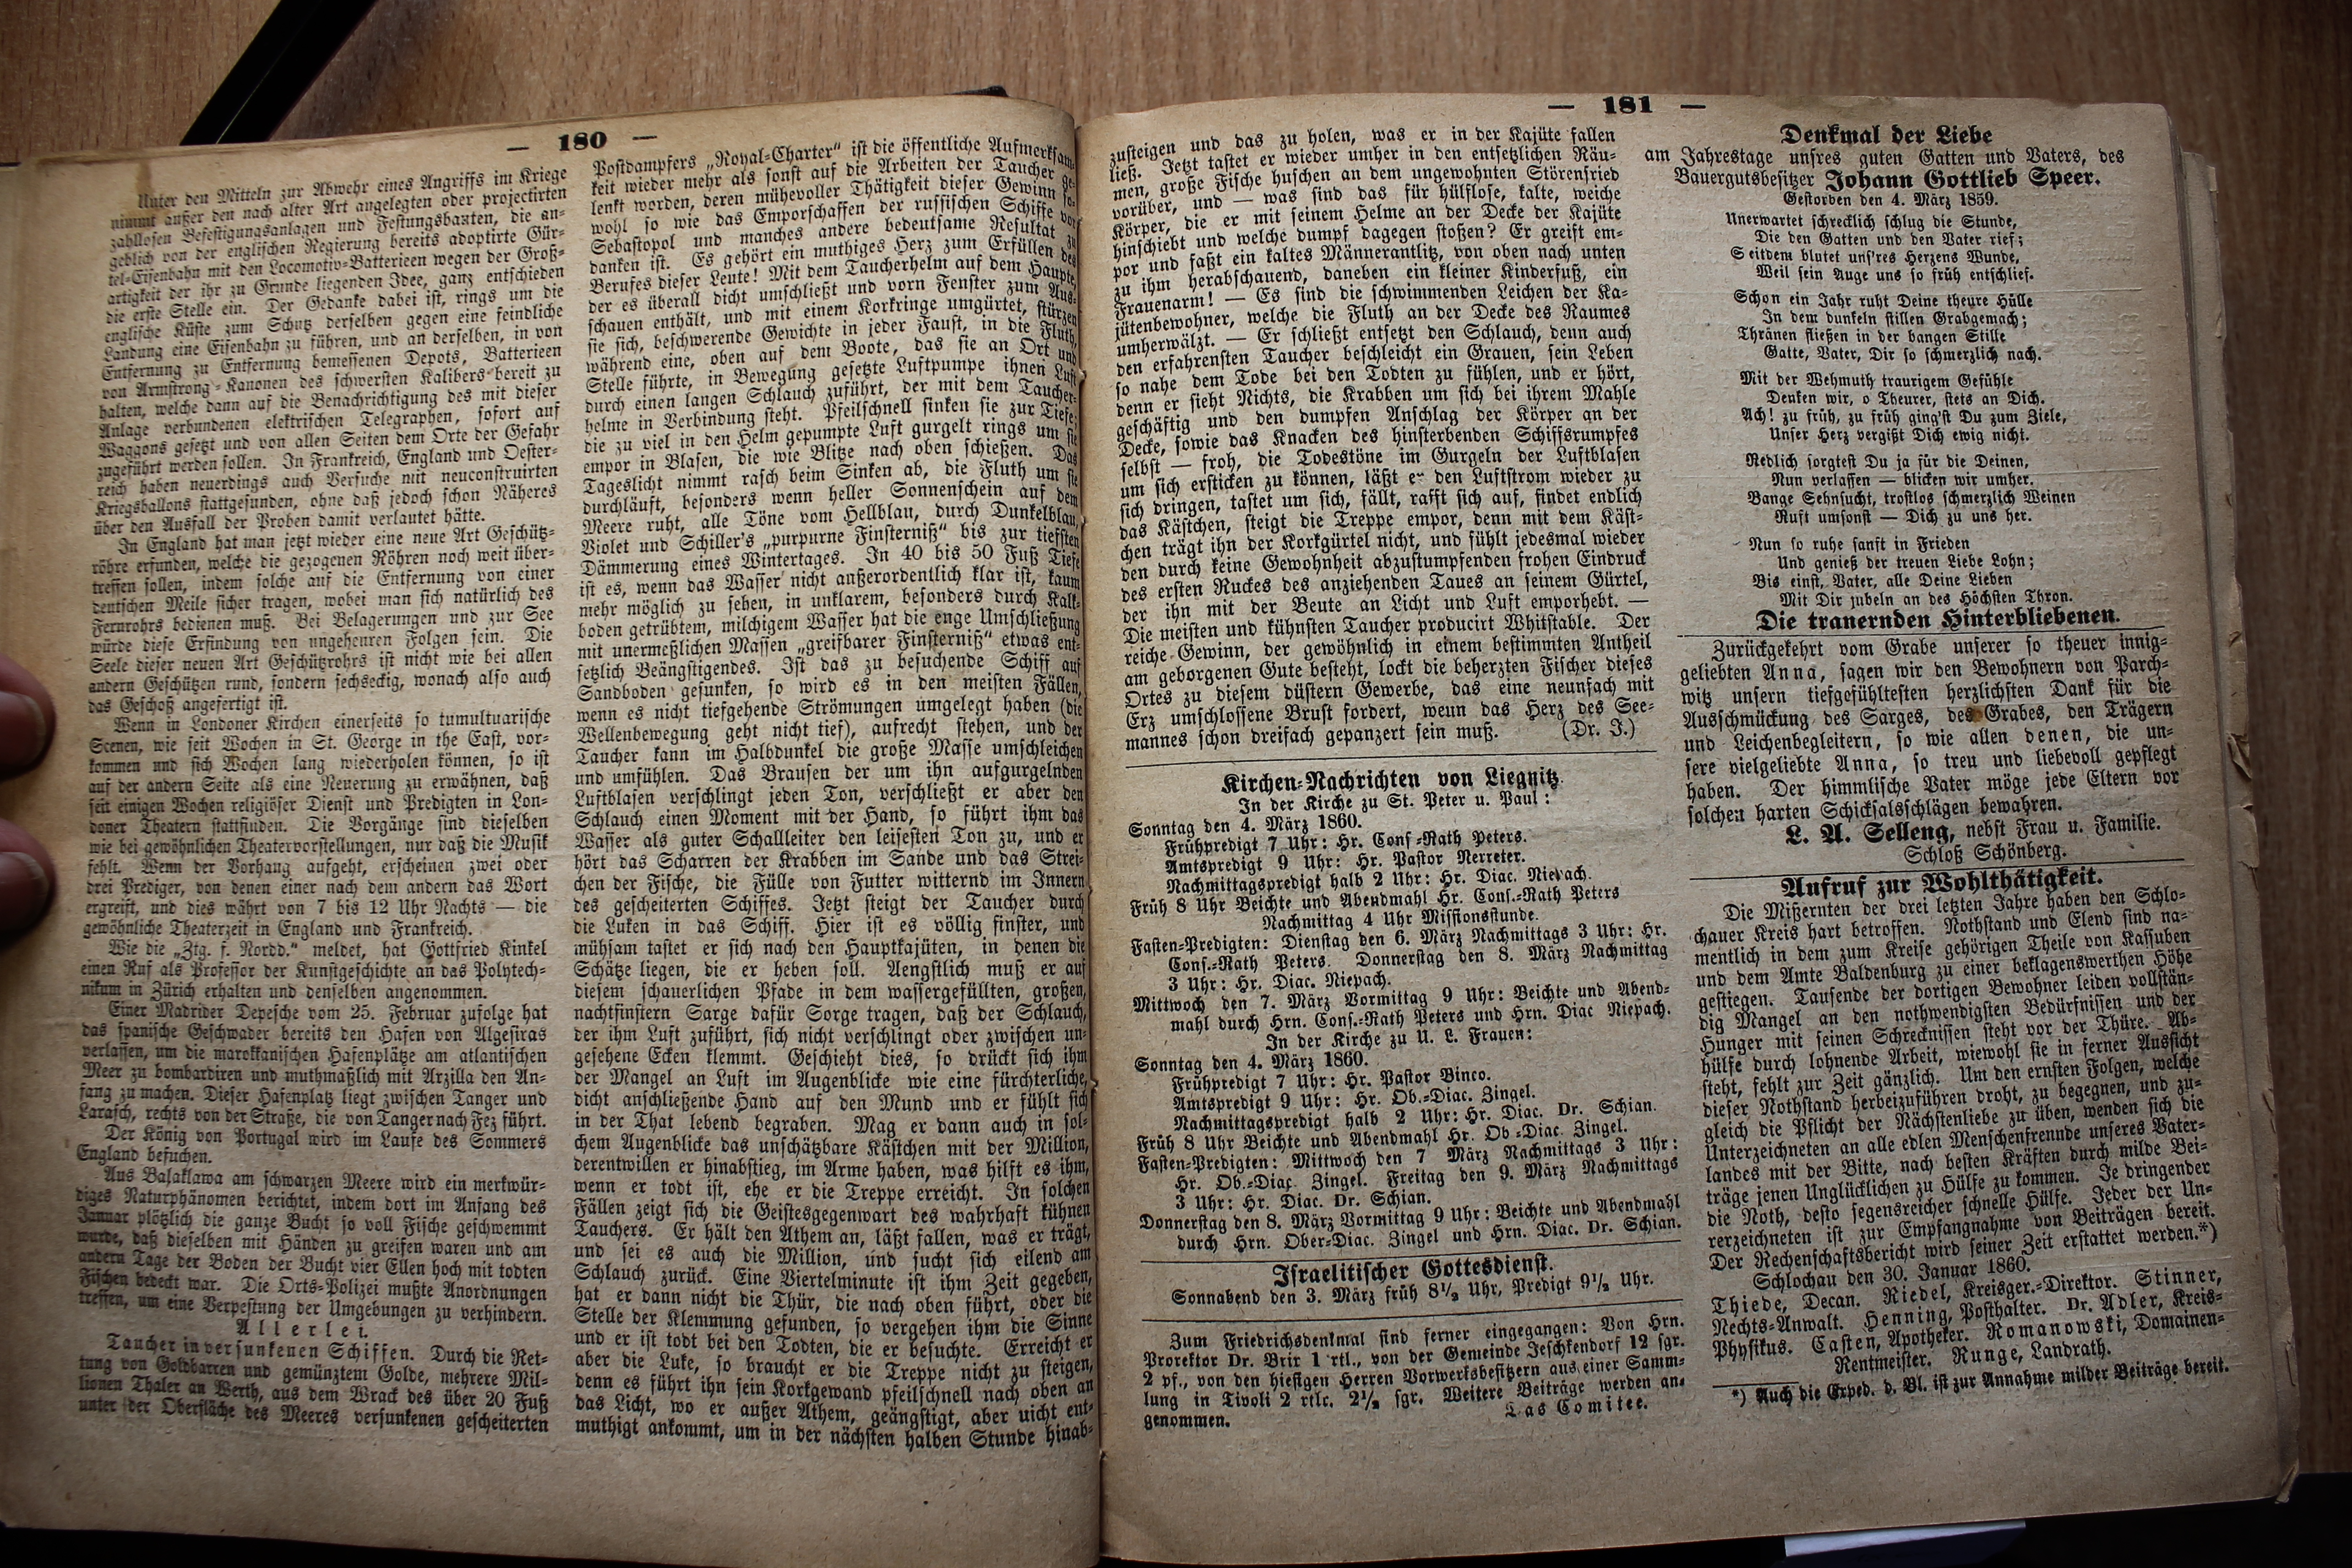 — 180 —
Unter den Mitteln zur Abwehr eines Angriffs im Kriege
nimmt außer den nach alter Art angelegten oder projectirten
zahllosen Befestigungsanlagen und Festungsbauten, die an-
geblich von der englischen Regierung bereits adoptirte Gür-
tel-Eisenbahn mit den Locomotiv-Batterieen wegen der Groß-
artigkeit der ihr zu Grunde liegenden Idee, ganz entschieden
die erste Stelle ein. Der Gedanke dabei ist, rings um die
englische Küste zum Schutz derselben gegen eine feindliche
Landung eine Eisenbahn zu führen, und an derselben, in von
Entfernung zu Entfernung bemessenen Depots, Batterieen
von Armstrong-Kanonen des schwersten Kalibers bereit zu
halten, welche dann auf die Benachrichtigung des mit dieser
Anlage verbundenen elektrischen Telegraphen, sofort auf
Waggons gesetzt und von allen Seiten dem Orte der Gefahr
zugeführt werden sollen. In Frankreich, England und Oester-
reich haben neuerdings auch Versuche mit neuconstruirten
Kriegsballons stattgefunden, ohne daß jedoch schon Näheres
über den Ausfall der Proben damit verlautet hätte.
In England hat man jetzt wieder eine neue Art Geschütz-
röhre erfunden, welche die gezogenen Röhren noch weit über-
treffen sollen, indem solche auf die Entfernung von einer
deutschen Meile sicher tragen, wobei man sich natürlich des
Fernrohrs bedienen muß. Bei Belagerungen und zur See
würde diese Erfindung von ungeheuren Folgen sein. Die
Seele dieser neuen Art Geschützrohrs ist nicht wie bei allen
andern Geschützen rund, sondern sechseckig, wonach also auch
das Geschoß angefertigt ist.
Wenn in Londoner Kirchen einerseits so tumultuarische
Scenen, wie seit Wochen in St. George in the East, vor-
kommen und sich Wochen lang wiederholen können, so ist
auf der andern Seite als eine Neuerung zu erwähnen, daß
seit einigen Wochen religiöser Dienst und Predigten in Lon-
doner Theatern stattfinden. Die Vorgänge sind dieselben
wie bei gewöhnlichen Theatervorstellungen, nur daß die Musik
fehlt. Wenn der Vorhang aufgeht, erscheinen zwei oder
drei Prediger, von denen einer nach dem andern das Wort
ergreift, und dies währt von 7 bis 12 Uhr Nachts — die
gewöhnliche Theaterzeit in England und Frankreich.
Wie die „Ztg. f. Nordd.“ meldet, hat Gottfried Kinkel
einen Ruf als Professor der Kunstgeschichte an das Polytech-
nikum in Zürich erhalten und denselben angenommen.
Einer Madrider Depesche vom 25. Februar zufolge hat
das spanische Geschwader bereits den Hafen von Algesiras
verlassen, um die marokkanischen Hafenplätze am atlantischen
Meer zu bombardiren und muthmaßlich mit Arzilla den An-
fang zu machen. Dieser Hafenplatz liegt zwischen Tanger und
Larasch, rechts von der Straße, die von Tanger nach Fez führt.
Der König von Portugal wird im Laufe des Sommers
England besuchen.
Aus Balaklawa am schwarzen Meere wird ein merkwür-
diges Naturphänomen berichtet, indem dort im Anfang des
Januar plötzlich die ganze Bucht so voll Fische geschwemmt
wurde, daß dieselben mit Händen zu greifen waren und am
andern Tage der Boden der Bucht vier Ellen hoch mit todten
Fischen bedeckt war. Die Orts-Polizei mußte Anordnungen
treffen, um eine Verpestung der Umgebungen zu verhindern.
Allerlei.
Taucher in versunkenen Schiffen. Durch die Ret-
tung von Goldbarren und gemünztem Golde, mehrere Mil-
lionen Thaler an Werth, aus dem Wrack des über 20 Fuß
unter der Oberfläche des Meeres versunkenen gescheiterten
Postdampfers „Royal-Charter“ ist die öffentliche Aufmerksam-
keit wieder mehr als sonst auf die Arbeiten der Taucher ge-
lenkt worden, deren mühevoller Thätigkeit dieser Gewinn so-
wohl so wie das Emporschaffen der russischen Schiffe vor
Sebastopol und manches andere bedeutsame Resultat zu
danken ist. Es gehört ein muthiges Herz zum Erfüllen des
Berufes dieser Leute! Mit dem Taucherhelm auf dem Haupte,
der es überall dicht umschließt und vorn Fenster zum Aus-
schauen enthält, und mit einem Korkringe umgürtet, stürzen
sie sich, beschwerende Gewichte in jeder Faust, in die Fluth,
während eine, oben auf dem Boote, das sie an Ort und
Stelle führte, in Bewegung gesetzte Luftpumpe ihnen Luft
durch einen langen Schlauch zuführt, der mit dem Taucher-
helme in Verbindung steht. Pfeilschnell sinken sie zur Tiefe;
die zu viel in den Helm gepumpte Luft gurgelt rings um sie
empor in Blasen, die wie Blitze nach oben schießen. Das
Tageslicht nimmt rasch beim Sinken ab, die Fluth um sie
durchläuft, besonders wenn heller Sonnenschein auf dem
Meere ruht, alle Töne vom Hellblau, durch Dunkelblau,
Violet und Schiller's „purpurne Finsterniß“ bis zur tiefsten
Dämmerung eines Wintertages. In 40 bis 50 Fuß Tiefe
ist es, wenn das Wasser nicht außerordentlich klar ist, kaum
mehr möglich zu sehen, in unklarem, besonders durch Kalk-
boden getrübtem, milchigem Wasser hat die enge Umschließung
mit unermeßlichen Massen „greifbarer Finsterniß“ etwas ent-
setzlich Beängstigendes. Ist das zu besuchende Schiff auf
Sandboden gesunken, so wird es in den meisten Fällen,
wenn es nicht tiefgehende Strömungen umgelegt haben (die
Wellenbewegung geht nicht tief), aufrecht stehen, und der
Taucher kann im Halbdunkel die große Masse umschleichen
und umfühlen. Das Brausen der um ihn aufgurgelnden
Luftblasen verschlingt jeden Ton, verschließt er aber den
Schlauch einen Moment mit der Hand, so führt ihm das
Wasser als guter Schallleiter den leisesten Ton zu, und er
hört das Scharren der Krabben im Sande und das Strei-
chen der Fische, die Fülle von Futter witternd im Innern
des gescheiterten Schiffes. Jetzt steigt der Taucher durch
die Luken in das Schiff. Hier ist es völlig finster, und
mühsam tastet er sich nach den Hauptkajüten, in denen die
Schätze liegen, die er heben soll. Aengstlich muß er auf
diesem schauerlichen Pfade in dem wassergefüllten, großen,
nachtfinstern Sarge dafür Sorge tragen, daß der Schlauch,
der ihm Luft zuführt, sich nicht verschlingt oder zwischen un-
gesehene Ecken klemmt. Geschieht dies, so drückt sich ihm
der Mangel an Luft im Augenblicke wie eine fürchterliche,
dicht anschließende Hand auf den Mund und er fühlt sich
in der That lebend begraben. Mag er dann auch in sol-
chem Augenblicke das unschätzbare Kästchen mit der Million,
derentwillen er hinabstieg, im Arme haben, was hilft es ihm,
wenn er todt ist, ehe er die Treppe erreicht. In solchen
Fällen zeigt sich die Geistesgegenwart des wahrhaft kühnen
Tauchers. Er hält den Athem an, läßt fallen, was er trägt,
und sei es auch die Million, und sucht sich eilend am
Schlauch zurück. Eine Viertelminute ist ihm Zeit gegeben,
hat er dann nicht die Thür, die nach oben führt, oder die
Stelle der Klemmung gefunden, so vergehen ihm die Sinne
und er ist todt bei den Todten, die er besuchte. Erreicht er
aber die Luke, so braucht er die Treppe nicht zu steigen,
denn es führt ihn sein Korkgewand pfeilschnell nach oben an
das Licht, wo er außer Athem, geängstigt, aber nicht ent-
muthigt ankommt, um in der nächsten halben Stunde hinab-
— 181 —
zusteigen und das zu holen, was er in der Kajüte fallen
ließ. Jetzt tastet er wieder umher in den entsetzlichen Räu-
men, große Fische huschen an dem ungewohnten Störenfried
vorüber, und — was sind das für hülflose, kalte, weiche
Körper, die er mit seinem Helme an der Decke der Kajüte
hinschiebt und welche dumpf dagegen stoßen? Er greift em-
por und faßt ein kaltes Männerantlitz, von oben nach unten
zu ihm herabschauend, daneben ein kleiner Kinderfuß, ein
Frauenarm! — Es sind die schwimmenden Leichen der Ka-
jütenbewohner, welche die Fluth an der Decke des Raumes
umherwälzt. — Er schließt entsetzt den Schlauch, denn auch
den erfahrensten Taucher beschleicht ein Grauen, sein Leben
so nahe dem Tode bei den Todten zu fühlen, und er hört,
denn er sieht Nichts, die Krabben um sich bei ihrem Mahle
geschäftig und den dumpfen Anschlag der Körper an der
Decke, sowie das Knacken des hinsterbenden Schiffsrumpfes
selbst — froh, die Todestöne im Gurgeln der Luftblasen
um sich ersticken zu können, läßt er den Luftstrom wieder zu
sich dringen, tastet um sich, fällt, rafft sich auf, findet endlich
das Kästchen, steigt die Treppe empor, denn mit dem Käst-
chen trägt ihn der Korkgürtel nicht, und fühlt jedesmal wieder
den durch keine Gewohnheit abzustumpfenden frohen Eindruck
des ersten Ruckes des anziehenden Taues an seinem Gürtel,
der ihn mit der Beute an Licht und Luft emporhebt. —
Die meisten und kühnsten Taucher producirt Whitstable. Der
reiche Gewinn, der gewöhnlich in einem bestimmten Antheil
am geborgenen Gute besteht, lockt die beherzten Fischer dieses
Ortes zu diesem düstern Gewerbe, das eine neunfach mit
Erz umschlossene Brust fordert, wenn das Herz des See-
mannes schon dreifach gepanzert sein muß. (Dr. J.)
Kirchen-Nachrichten von Liegnitz.
In der Kirche zu St. Peter u. Paul:
Sonntag den 4. März 1860.
Frühpredigt 7 Uhr: Hr. Cons-Rath Peters.
Amtspredigt 9 Uhr: Hr. Pastor Nerreter.
Nachmittagspredigt halb 2 Uhr: Hr. Diac. Niepach.
Früh 8 Uhr Beichte und Abendmahl Hr. Cons.-Rath Peters
Nachmittag 4 Uhr Missionsstunde.
Fasten-Predigten: Dienstag den 6. März Nachmittags 3 Uhr: Hr.
Cons.-Rath Peters. Donnerstag den 8. März Nachmittag
3 Uhr: Hr. Diac. Niepach.
Mittwoch den 7. März Vormittag 9 Uhr: Beichte und Abend-
mahl durch Hrn. Cons.-Rath Peters und Hrn. Diac Niepach.
In der Kirche zu U. L. Frauen:
Sonntag den 4. März 1860.
Frühpredigt 7 Uhr: Hr. Pastor Binco.
Amtspredigt 9 Uhr: Hr. Ob.-Diac. Zingel.
Nachmittagspredigt halb 2 Uhr: Hr. Diac. Dr. Schian.
Früh 8 Uhr Beichte und Abendmahl Hr. Ob-Diac. Zingel.
Fasten-Predigten: Mittwoch den 7 März Nachmittags 3 Uhr:
Hr. Ob.-Diac. Zingel. Freitag den 9. März Nachmittags
3 Uhr: Hr. Diac. Dr. Schian.
Donnerstag den 8. März Vormittag 9 Uhr: Beichte und Abendmahl
durch Hrn. Ober-Diac. Zingel und Hrn. Diac. Dr. Schian.
Israelitischer Gottesdienst.
Sonnabend den 3. März früh 8½ Uhr, Predigt 9½ Uhr.
Zum Friedrichsdenkmal sind ferner eingegangen: Von Hrn.
Prorektor Dr. Brix 1 rtl., von der Gemeinde Jeschkendorf 12 sgr.
2 pf., von den hiesigen Herren Vorwerksbesitzern aus einer Samm-
lung in Tivoli 2 rtlr. 2½ sgr. Weitere Beiträge werden an-
genommen. Das Comitee.
Denkmal der Liebe
am Jahrestage unsres guten Gatten und Vaters, des
Bauergutsbesitzer Johann Gottlieb Speer.
Gestorben den 4. März 1859.
Unerwartet schrecklich schlug die Stunde,
Die den Gatten und den Vater rief;
Seitdem blutet uns'res Herzens Wunde,
Weil sein Auge uns so früh entschlief.
Schon ein Jahr ruht Deine theure Hülle
In dem dunkeln stillen Grabgemach;
Thränen fließen in der bangen Stille
Gatte, Vater, Dir so schmerzlich nach.
Mit der Wehmuth traurigem Gefühle
Denken wir, o Theurer, stets an Dich.
Ach! zu früh, zu früh ging'st Du zum Ziele,
Unser Herz vergißt Dich ewig nicht.
Redlich sorgtest Du ja für die Deinen,
Nun verlassen — blicken wir umher.
Bange Sehnsucht, trostlos schmerzlich Weinen
Ruft umsonst — Dich zu uns her.
Nun so ruhe sanft in Frieden
Und genieß der treuen Liebe Lohn;
Bis einst, Vater, alle Deine Lieben
Mit Dir jubeln an des Höchsten Thron.
Die trauernden Hinterbliebenen.
Zurückgekehrt vom Grabe unserer so theuer innig-
geliebten Anna, sagen wir den Bewohnern von Parch-
witz unsern tiefgefühltesten herzlichsten Dank für die
Ausschmückung des Sarges, des Grabes, den Trägern
und Leichenbegleitern, so wie allen denen, die un-
sere vielgeliebte Anna, so treu und liebevoll gepflegt
haben. Der himmlische Vater möge jede Eltern vor
solchen harten Schicksalsschlägen bewahren.
L. A. Selleng, nebst Frau u. Familie.
Schloß Schönberg.
Aufruf zur Wohlthätigkeit.
Die Mißernten der drei letzten Jahre haben den Schlo-
chauer Kreis hart betroffen. Nothstand und Elend sind na-
mentlich in dem zum Kreise gehörigen Theile von Kassuben
und dem Amte Baldenburg zu einer beklagenswerthen Höhe
gestiegen. Tausende der dortigen Bewohner leiden vollstän-
dig Mangel an den nothwendigsten Bedürfnissen und der
Hunger mit seinen Schrecknissen steht vor der Thüre. Ab-
hülfe durch lohnende Arbeit, wiewohl sie in ferner Aussicht
steht, fehlt zur Zeit gänzlich. Um den ernsten Folgen, welche
dieser Nothstand herbeizuführen droht, zu begegnen, und zu-
gleich die Pflicht der Nächstenliebe zu üben, wenden sich die
Unterzeichneten an alle edlen Menschenfreunde unseres Vater-
landes mit der Bitte, nach besten Kräften durch milde Bei-
träge jenen Unglücklichen zu Hülfe zu kommen. Je dringender
die Noth, desto segensreicher schnelle Hülfe. Jeder der Un-
rerzeichneten ist zur Empfangnahme von Beiträgen bereit.
Der Rechenschaftsbericht wird seiner Zeit erstattet werden.*)
Schlochau den 30. Januar 1860.
Thiede, Decan. Riedel, Kreisger.-Direktor. Stinner,
Rechts-Anwalt. Henning, Posthalter. Dr. Adler, Kreis-
Physikus. Casten, Apotheker. Romanowski, Domainen-
Rentmeister. Runge, Landrath.
*) Auch die Exped. d. Bl. ist zur Annahme milder Beiträge bereit.